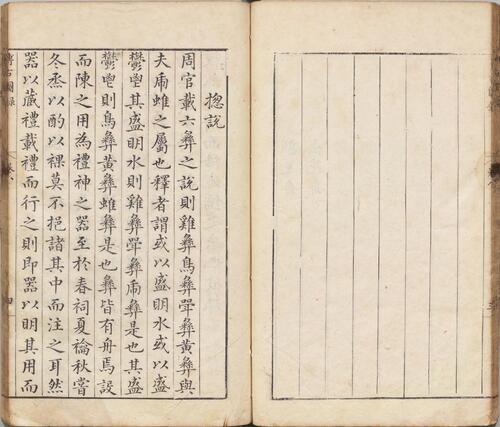 揔說
周官載六彝之說則雞彝鳥彝斝彝黄彝與
夫虎蜼之屬也釋者謂或以盛明水或以盛
鬱鬯其盛明水則雞彝斝彝虎彝是也其盛
鬱鬯則鳥彝黄彝蜼彝是也彝皆有舟焉設
而陳之用為禮神之器至於春祠夏禴秋嘗
冬烝以酌以祼莫不挹諸其中而注之耳然
器以藏禮載禮而行之則即器以明其用而
博古圖録